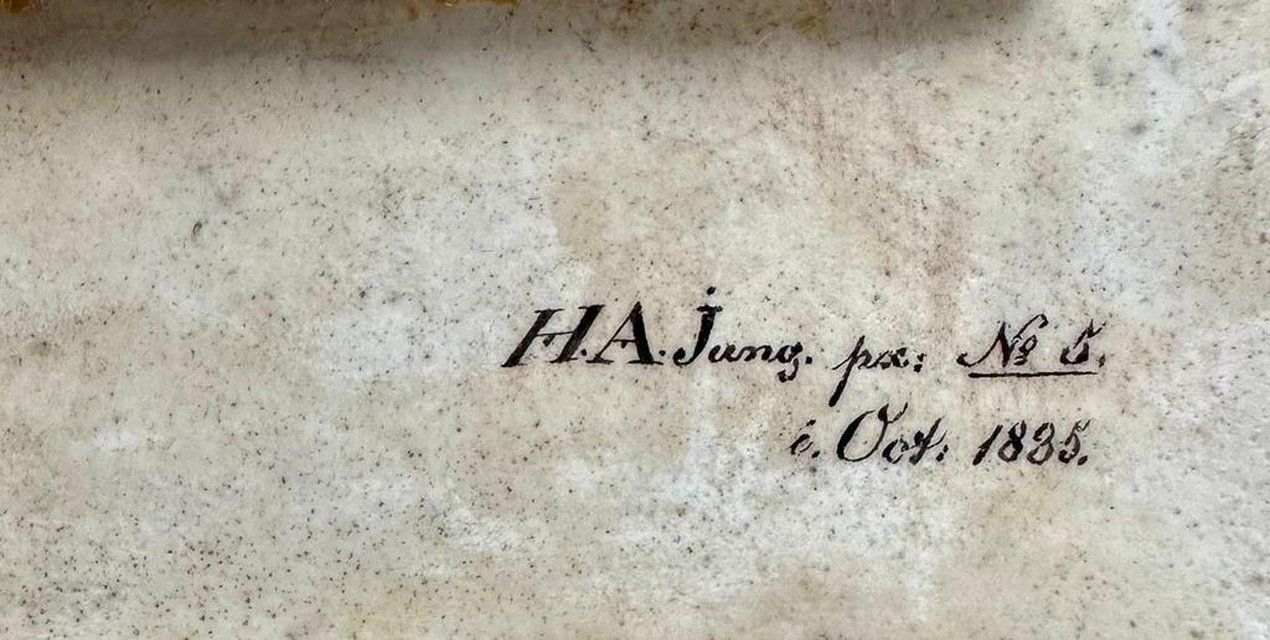 H.A. Jung. px: No 5.
i. Oct. 1835.